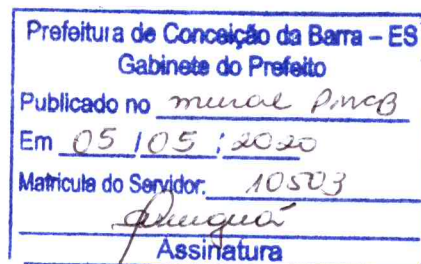 Prefeitura de Conceição da Barra – ES
Gabinete do Prefeito
Publicado no mural PMCB
Em 05 / 05 / 2020
Matricula do Servidor: 10503
Assinatura